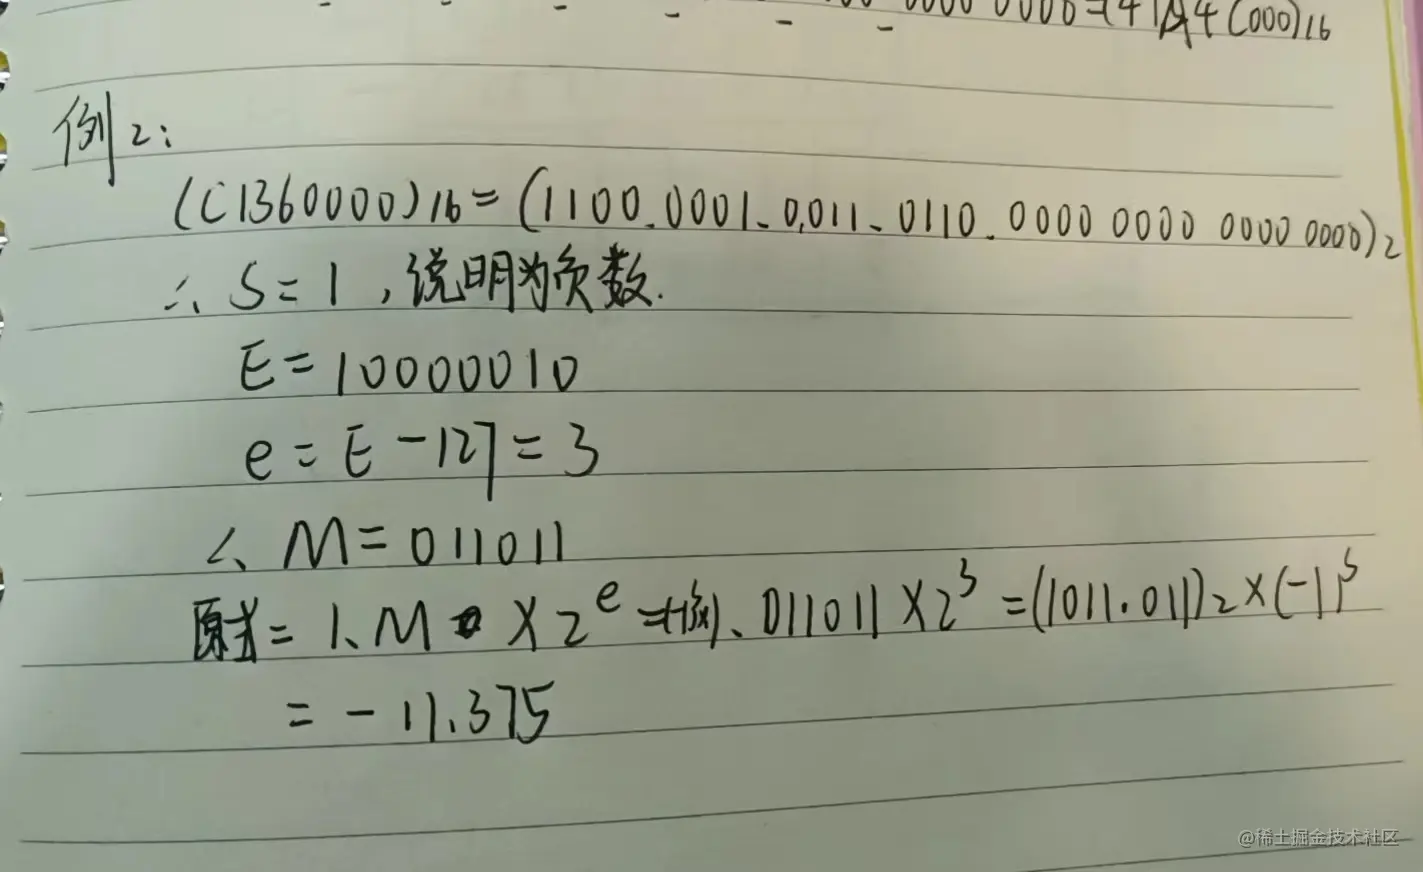 0000 0000=(41A4C000)16
例2:
(C1360000)16=(1100.0001.0.011.0110.0000 0000 0000 0000)2
∴ S=1,说明为负数.
E=10000010
e=E-127=3
∴ M=011011
原式=1.M × 2^e = 1.011011×2^3=(1011.011)2×(-1)^S
=-11.375
@稀土掘金技术社区